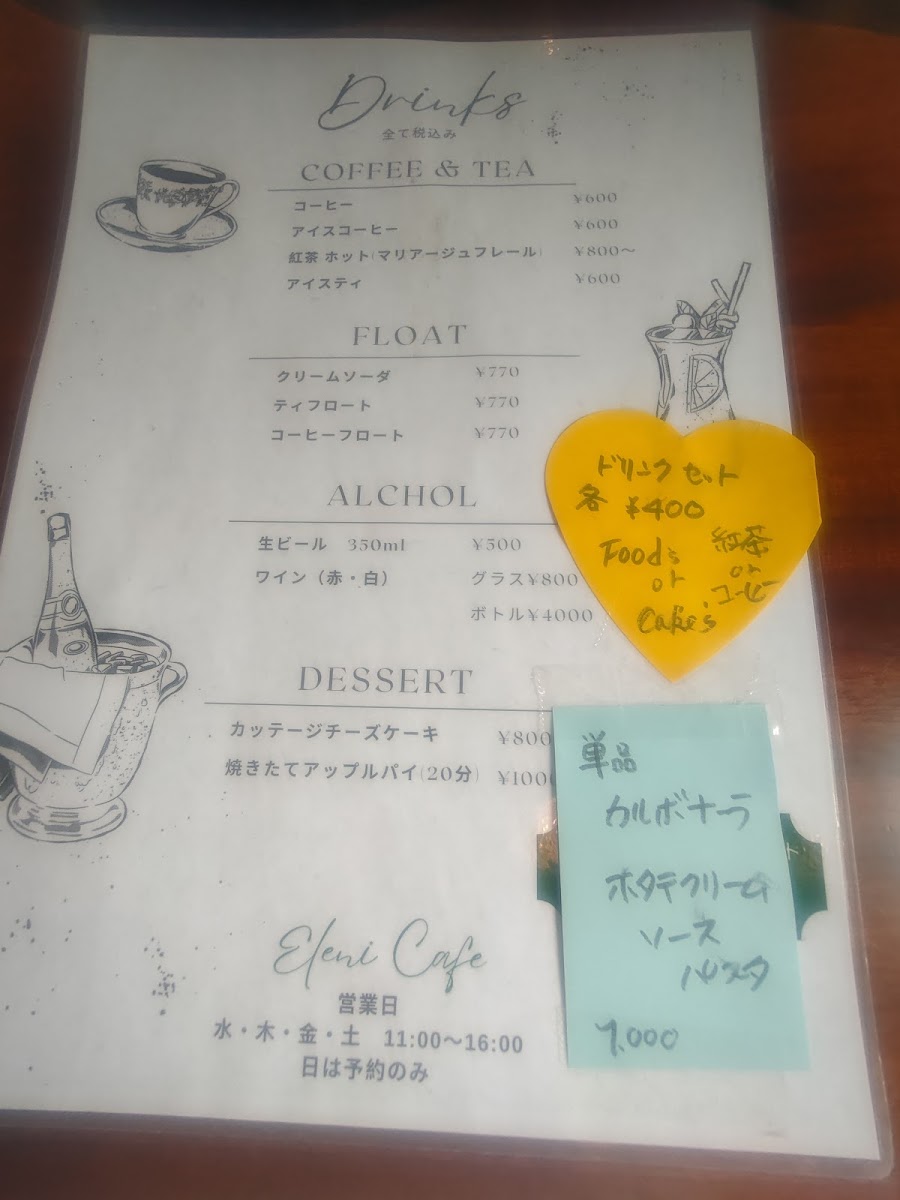 Drinks
全て税込み
COFFEE & TEA
コーヒー ¥600
アイスコーヒー ¥600
紅茶 ホット(マリアージュフレール) ¥800〜
アイスティ ¥600
FLOAT
クリームソーダ ¥770
ティフロート ¥770
コーヒーフロート ¥770
ALCHOL
生ビール 350ml ¥500
ワイン（赤・白） グラス¥800
ボトル¥4000
DESSERT
カッテージチーズケーキ ¥800
焼きたてアップルパイ(20分) ¥1000
Eleni Cafe
営業日
水・木・金・土 11:00〜16:00
日は予約のみ
ドリンクセット
各 ¥400
Food's
or
Cake's
紅茶
or
コーヒー
単品
カルボナーラ
ホタテクリーム
ソース
パスタ
1,000